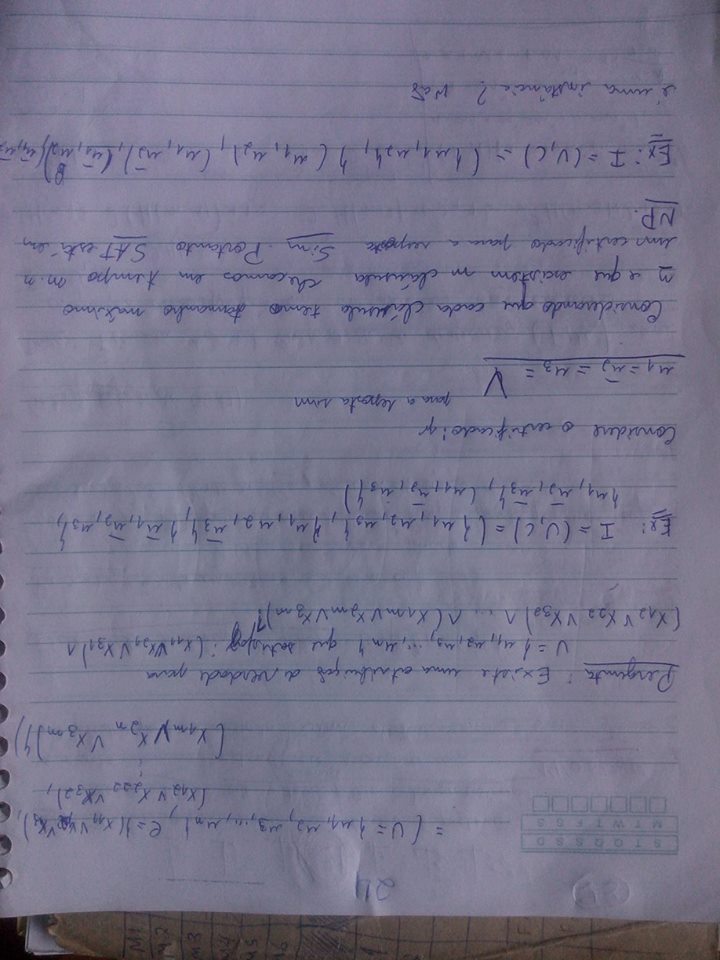 24
S T Q Q S S D
M T W T F S S
= (U = {u1, u2, u3, ..., un}, C = {(x11 V x21 V x31),
(x12 V x22 V x32),
⋮
(x1m V x2m V x3m)})
Pergunta: Existe uma atribuição d verdade para
U = {u1, u2, u3, ..., un} que satisfaz: (x11 V x21 V x31) ∧
(x12 V x22 V x32) ∧ ... ∧ (x1m V x2m V x3m)?
Ex: I = (U, C) = ({u1, u2, u3}, {u1, u2, u̅3} {u̅1, u̅2, u3},
{u1, u̅2, u̅3}, (u1, u̅2, u3})
Considere o certificado: para a resposta sim
u1 = u̅2 = u3 = V
Considerando que cada cláusula temo tamanho máximo
n e que existem m cláusula checamos em tempo m.n
um certificado para a resposta Sim. Portanto SAT está em
NP.
Ex: I = (U, C) = ({u1, u2}, {(u1, u2), (u1, u̅2), (u̅1, u2), (u̅1, u̅2)
é uma instância? VaF